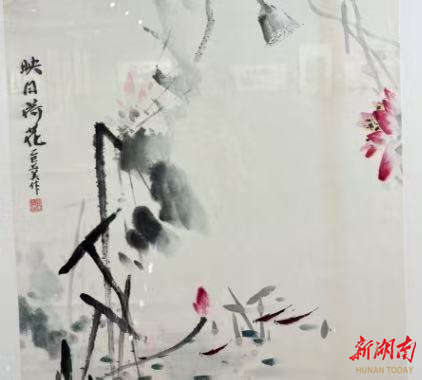 映日荷花
新湖南
HUNAN TODAY